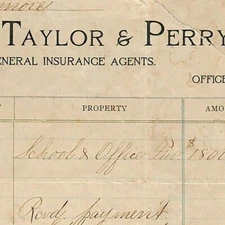 TAYLOR & PERRY
GENERAL INSURANCE AGENTS.
OFFICE
PROPERTY
AMO
School & Office Fur. $1800
Recd payment